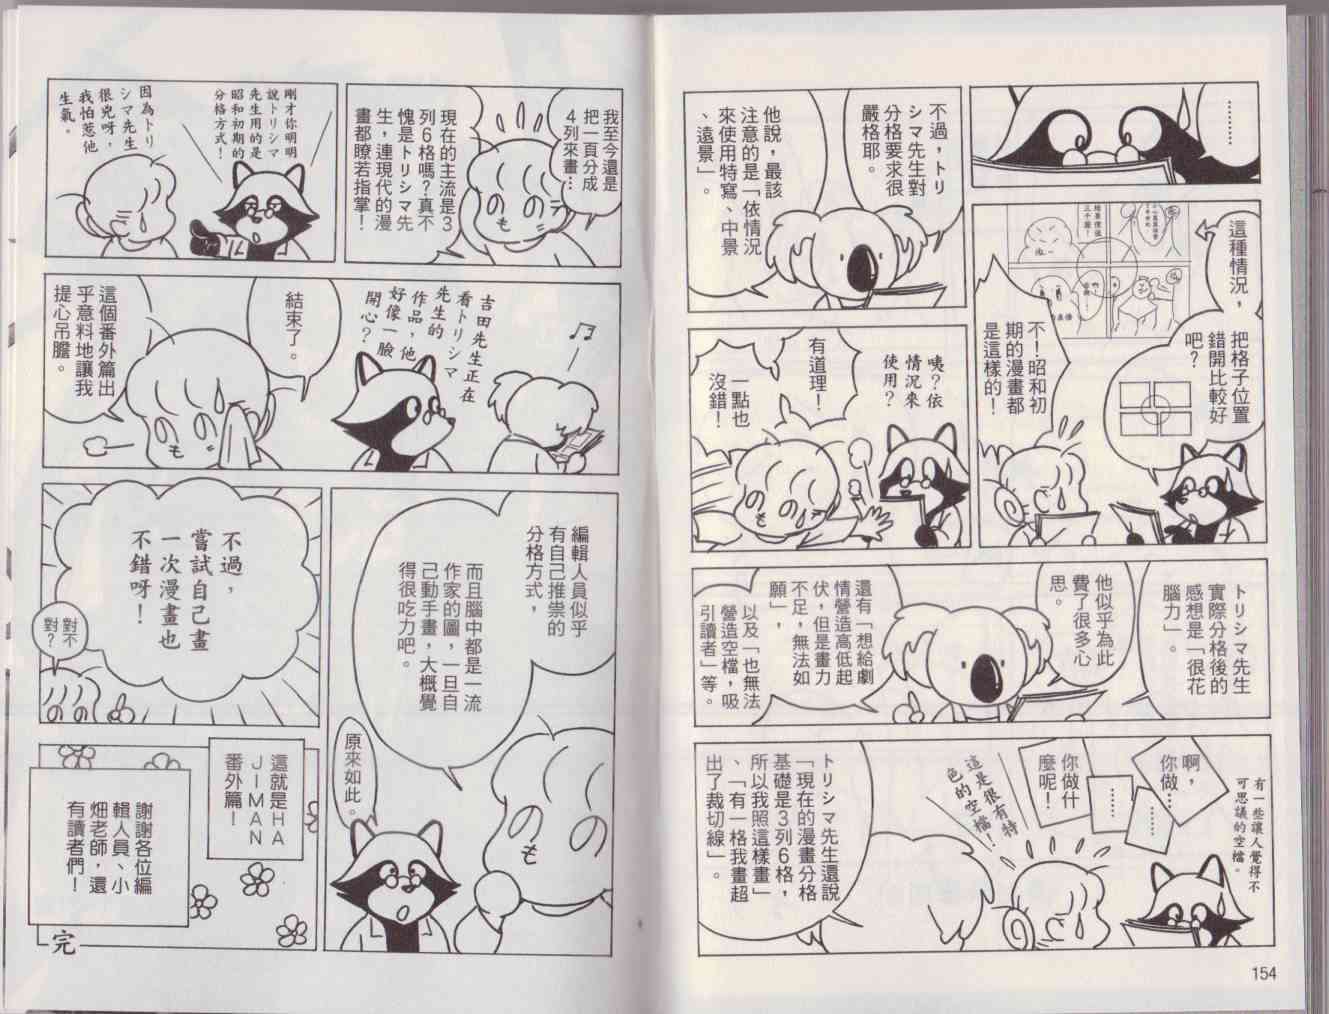 ………
這種情況，
把格子位置
錯開比較好
吧？
不！昭和初
期的漫畫都
是這樣的！
不過，トリ
シマ先生對
分格要求很
嚴格耶。
他說，最該
注意的是「依情況
來使用特寫、中景
、遠景」。
咦？依
情況來
使用？
有道理！
一點也
沒錯！
トリシマ先生
實際分格後的
感想是「很花
腦力」。
他似乎為此
費了很多心
思。
還有「想給劇
情營造高低起
伏，但是畫力
不足，無法如
願」，
以及「也無法
營造空檔，吸
引讀者」等。
有一些讓人覺得不
可思議的空檔。
啊，
你做…
……
……
你做什
麼呢！
這是很有特
色的空檔！
トリシマ先生還說
「現在的漫畫分格
基礎是3列6格，
所以我照這樣畫」
、「有一格我畫超
出了裁切線」。
154
我至今還是
把一頁分成
4列來畫…
現在的主流是3
列6格嗎？真不
愧是トリシマ先
生，連現代的漫
畫都瞭若指掌！
剛才你明明
說トリシマ
先生用的是
昭和初期的
分格方式！
因為トリ
シマ先生
很兇呀，
我怕惹他
生氣。
♫
吉田先生正在
看トリシマ
先生的
作品，他
好像一臉
開心？
結束了。
這個番外篇出
乎意料地讓我
提心吊膽。
編輯人員似乎
有自己推崇的
分格方式，
而且腦中都是一流
作家的圖，一旦自
己動手畫，大概覺
得很吃力吧。
原來如此。
不過，
嘗試自己畫
一次漫畫也
不錯呀！
對不
對？
這就是HA
JIMAN
番外篇！
謝謝各位編
輯人員、小
畑老師，還
有讀者們！
完